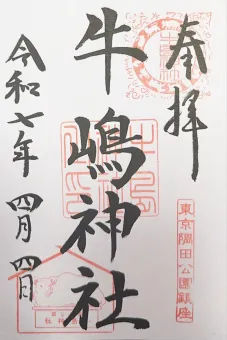 奉拝
牛嶋神社
令和七年 四月 四日
東京隅田公園鎮座